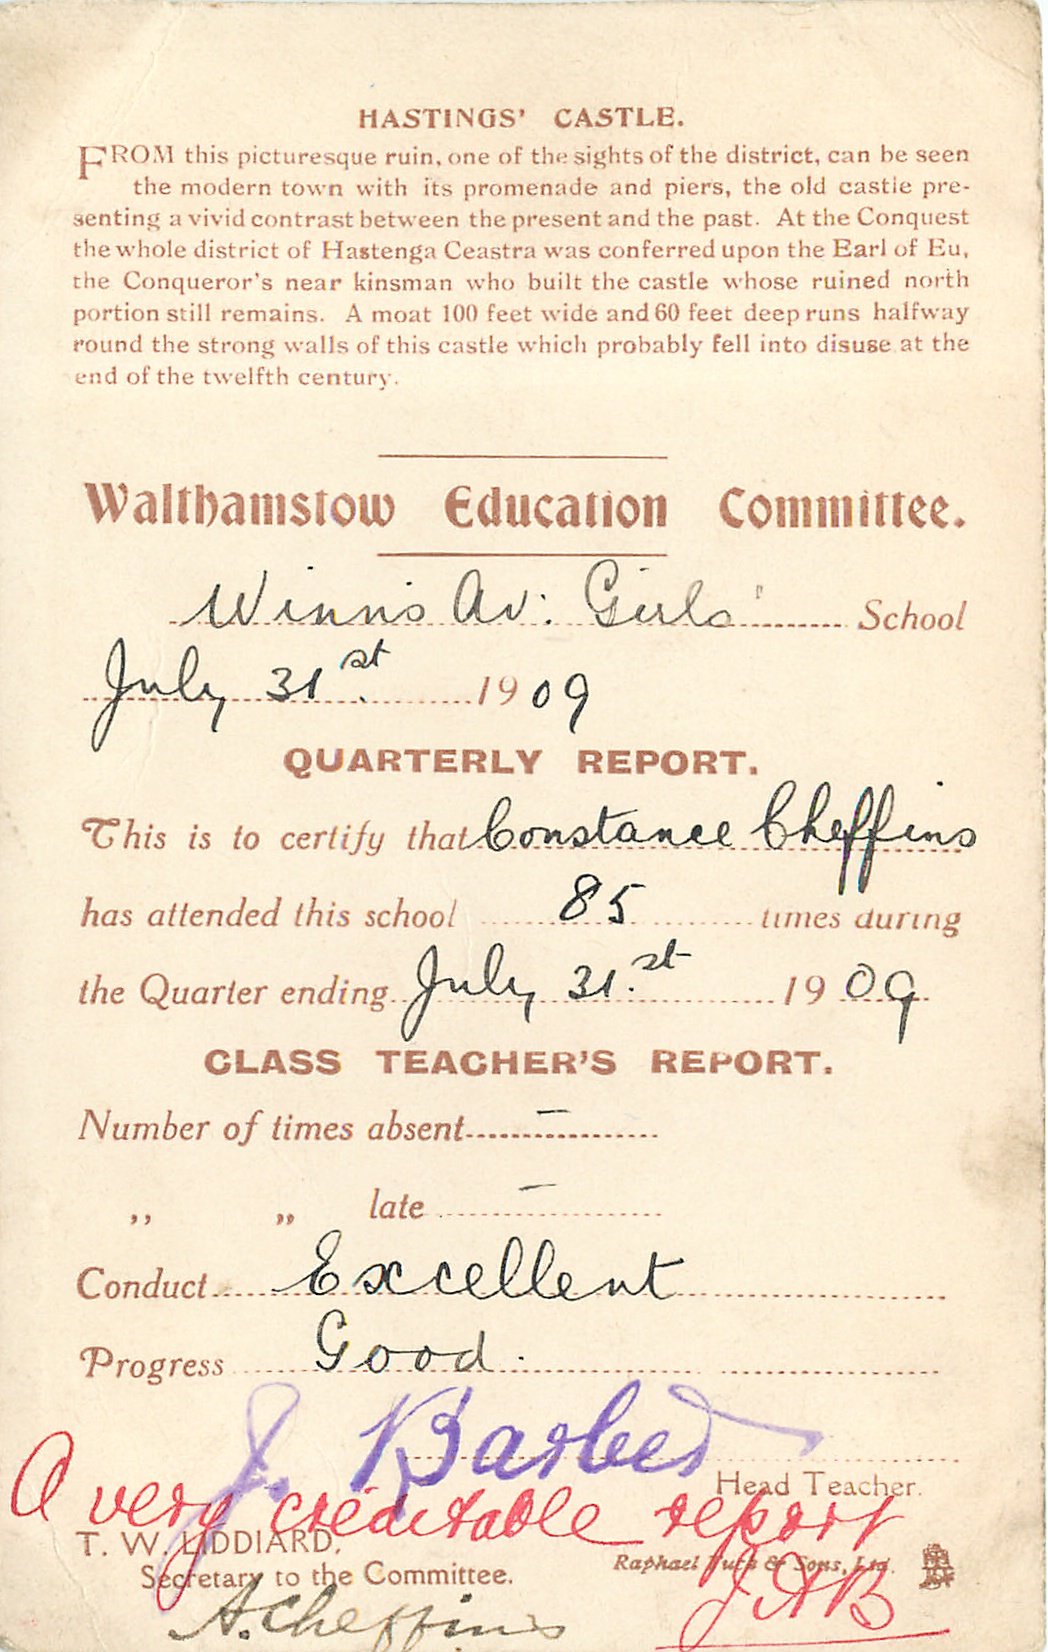 HASTINGS' CASTLE.
FROM this picturesque ruin, one of the sights of the district, can be seen
the modern town with its promenade and piers, the old castle pre-
senting a vivid contrast between the present and the past. At the Conquest
the whole district of Hastenga Ceastra was conferred upon the Earl of Eu,
the Conqueror's near kinsman who built the castle whose ruined north
portion still remains. A moat 100 feet wide and 60 feet deep runs halfway
round the strong walls of this castle which probably fell into disuse at the
end of the twelfth century.
Walthamstow Education Committee.
Winns Av: Girls' School
July 31st. 1909
QUARTERLY REPORT.
This is to certify that Constance Cheffins
has attended this school 85 times during
the Quarter ending July 31.st 1909
CLASS TEACHER'S REPORT.
Number of times absent –
,, ,, late –
Conduct Excellent
Progress Good.
J. Barber
Head Teacher.
A very creditable report
T. W. LIDDIARD,
Secretary to the Committee.
Raphael Tuck & Sons, Ltd.
J.A.B
A. Cheffins